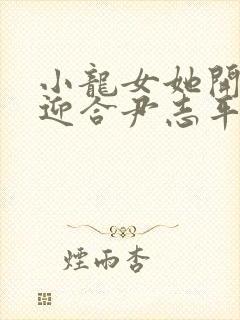 小龍女她開
迎合尹志平
煙雨杏